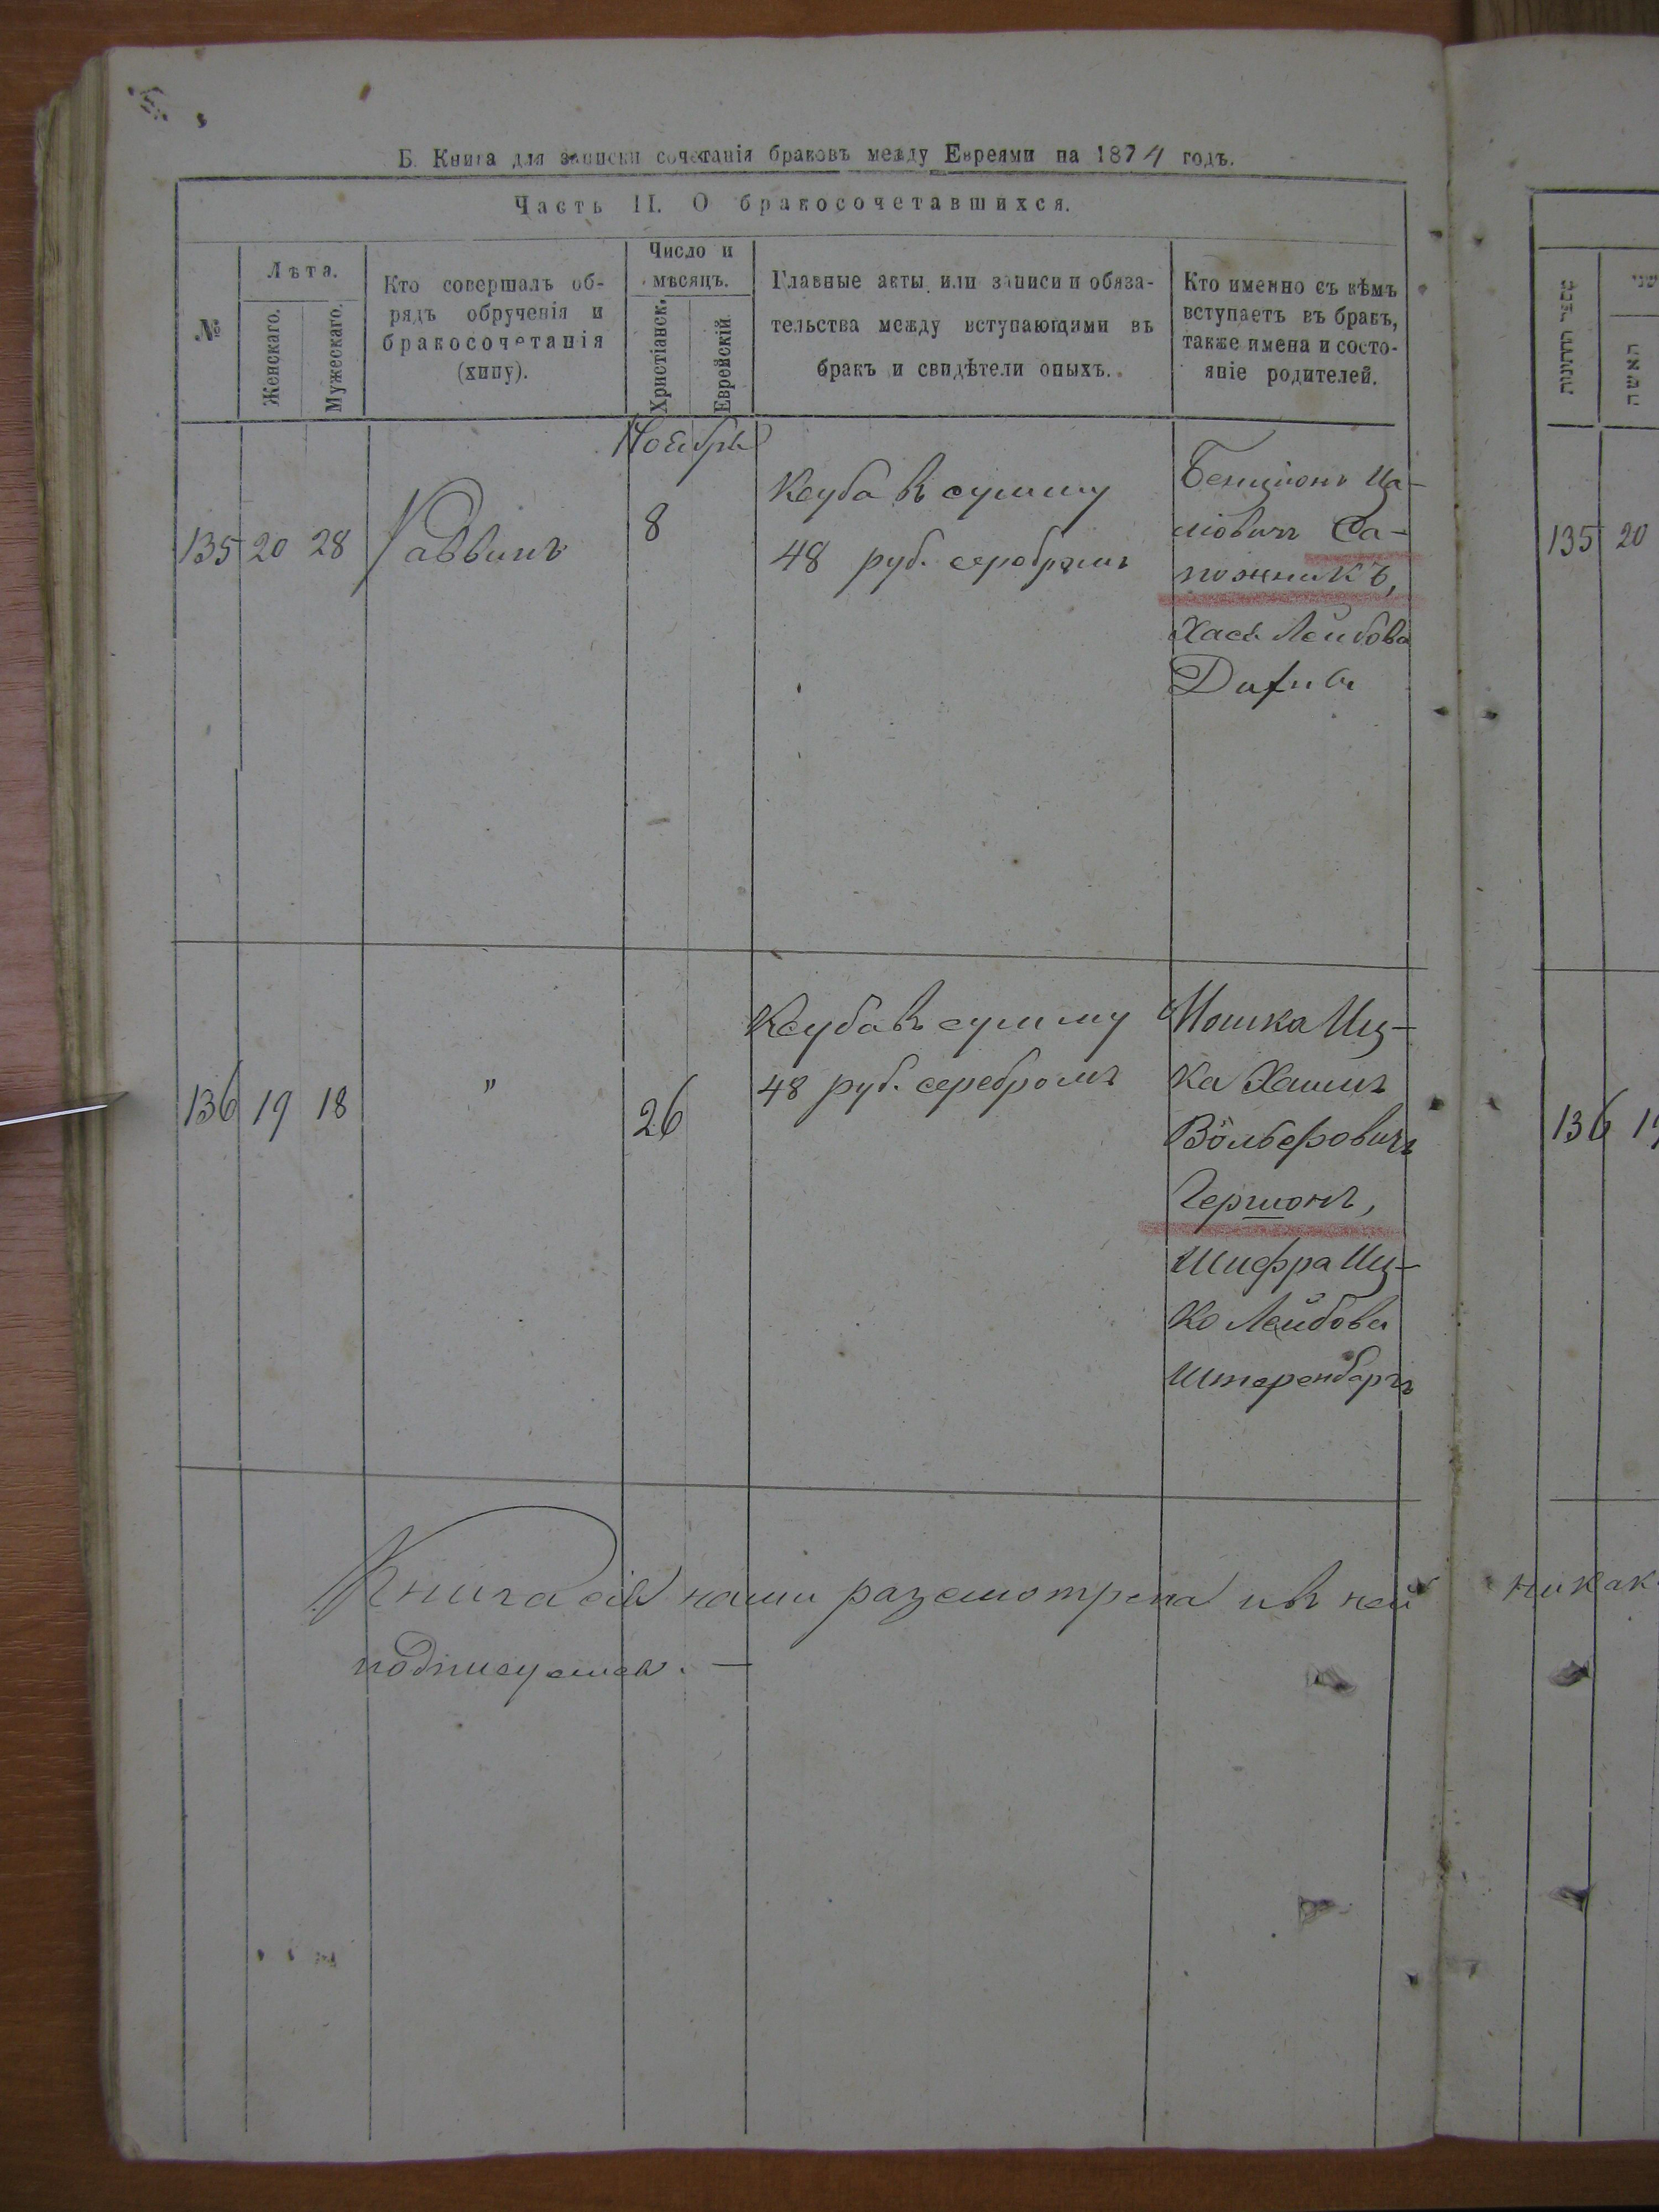 Б. Книга для записки сочетанія браковъ между Евреями на 1874 годъ.
Часть II. О бракосочетавшихся.
№
Лѣта.
Женскаго.
Мужескаго.
Кто совершалъ об-
рядъ обрученія и
бракосочетанія
(хипу).
Число и
мѣсяцъ.
Христіанск.
Еврейскій.
Главные акты или записи и обяза-
тельства между вступающими въ
бракъ и свидѣтели оныхъ.
Кто именно съ кѣмъ
вступаетъ въ бракъ,
также имена и состо-
яніе родителей.
Ноябрь
135 20 28 Раввинъ 8
Ксуба въ сумму
48 руб. серебромъ
Бенціонъ
Са-
пожникъ,
Хася Лейбова
135 20
136 19 18 " 26
Ксуба въ сумму
48 руб. серебромъ
Мошка Иц-
ка Хаимъ
Вольфовичъ
Гершонъ,
Шифра Иц-
ко Лейбова
Штеренбергъ
136 19
Книга сія нами разсмотрена и въ ней никак
подписуемся. —